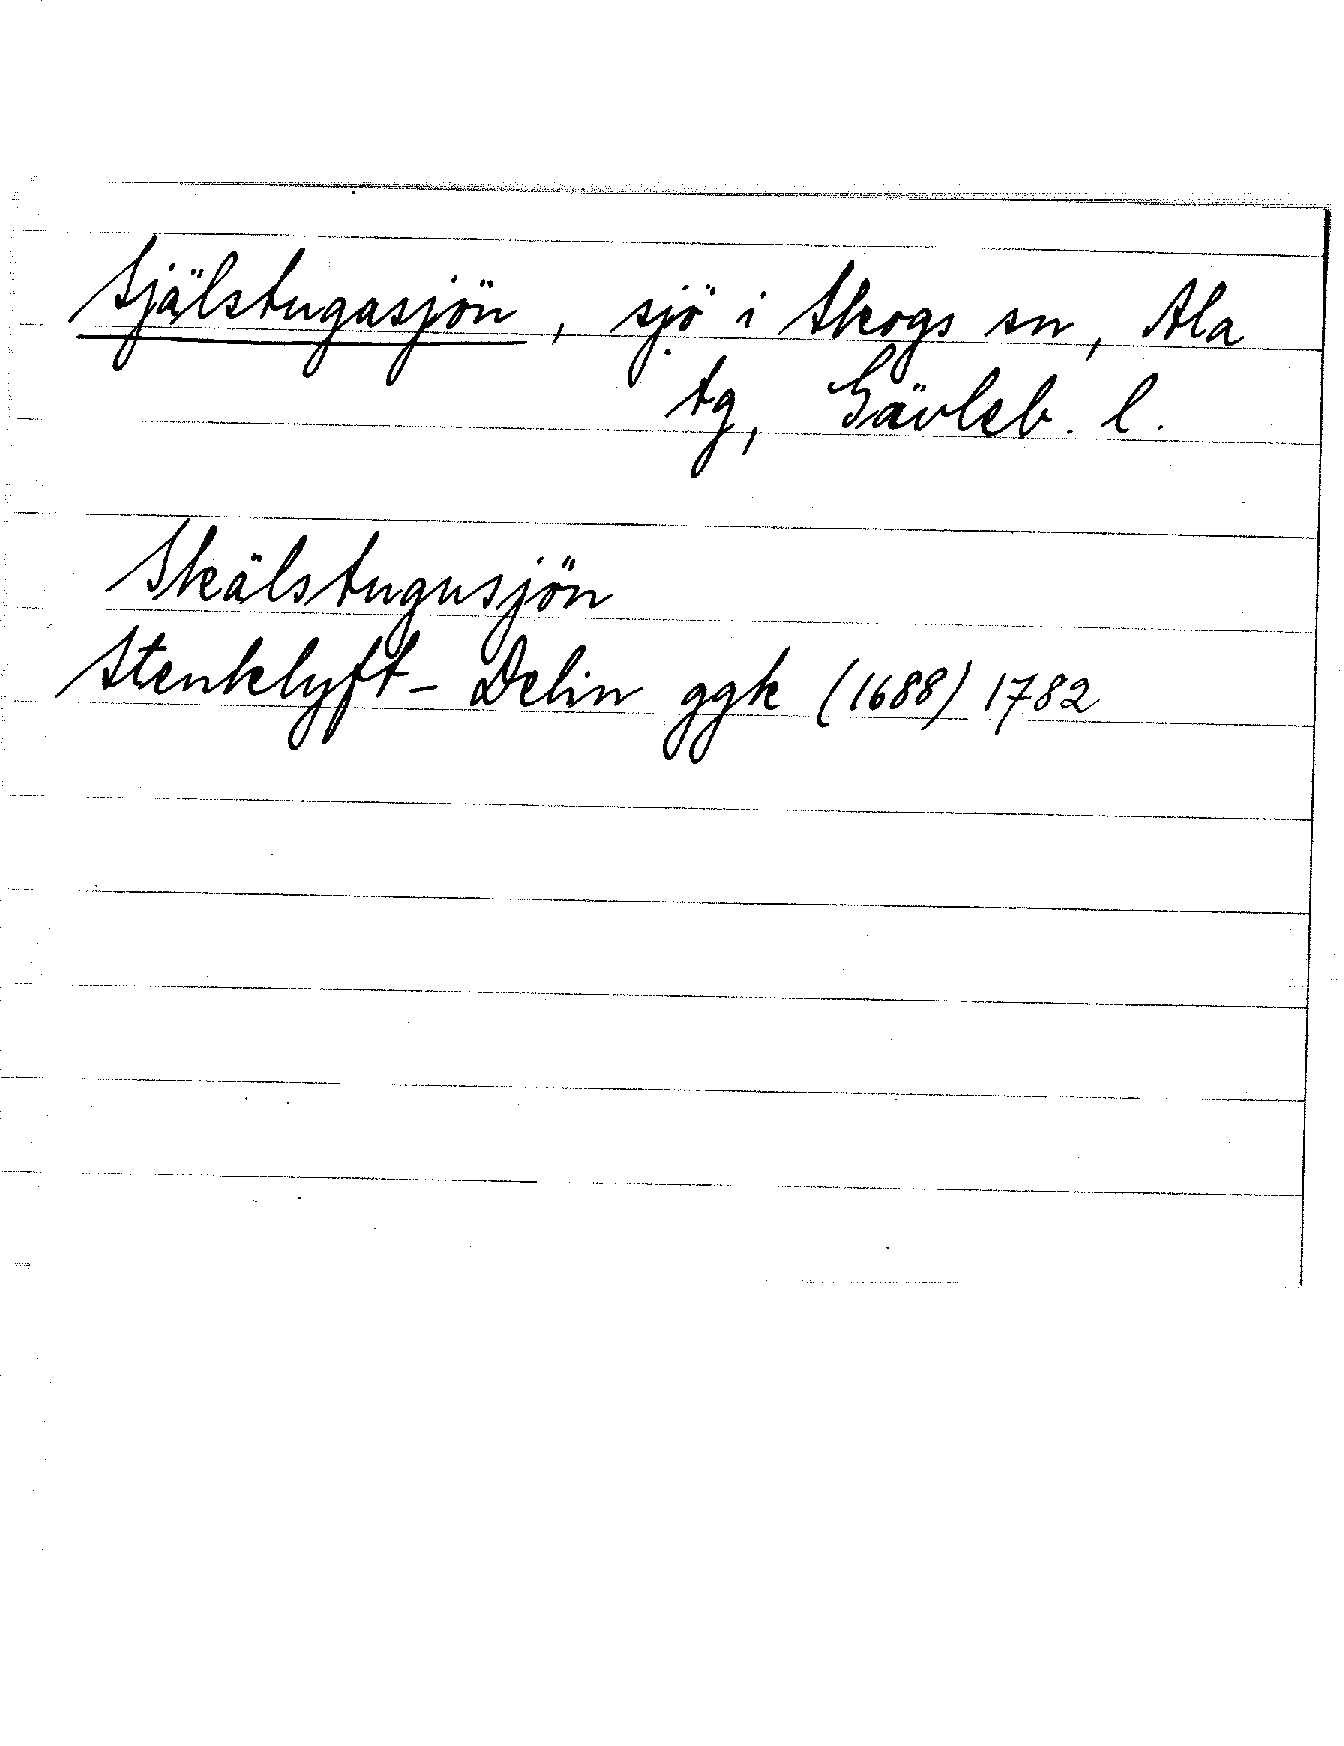 Själstugasjön, sjö i Skogs sn, Ala
tg, Gävleb. l.
Skälstugusjön
Stenklyft - Delin ggk (1688) 1782